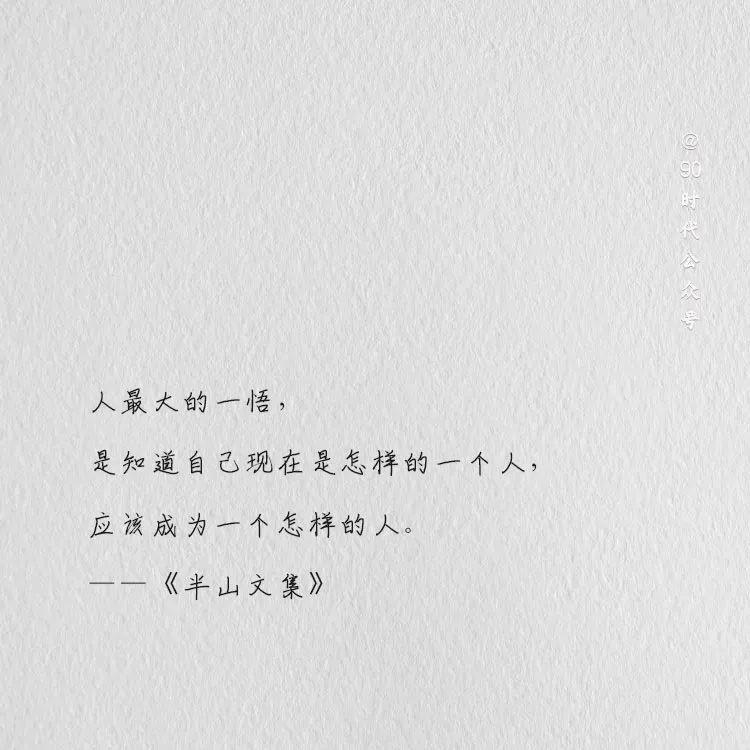 @90时代公众号
人最大的一悟，
是知道自己现在是怎样的一个人，
应该成为一个怎样的人。
——《半山文集》